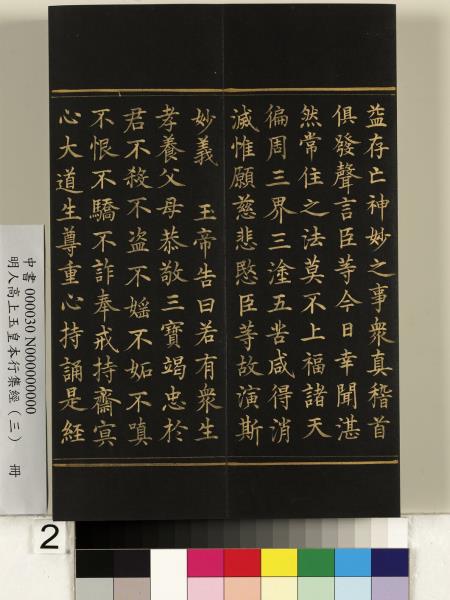 益存亡神妙之事衆真稽首
俱發聲言臣等今日幸聞湛
然常住之法莫不上福諸天
徧周三界三塗五苦咸得消
滅惟願慈悲愍臣等故演斯
妙義　玉帝告曰若有衆生
孝養父母恭敬三寶竭忠於
君不殺不盜不婬不妬不嗔
不恨不驕不詐奉戒持齋㝠
心大道生尊重心持誦是經
中書 000030 N000000000
明人高上玉皇本行集經（三） 冊
2